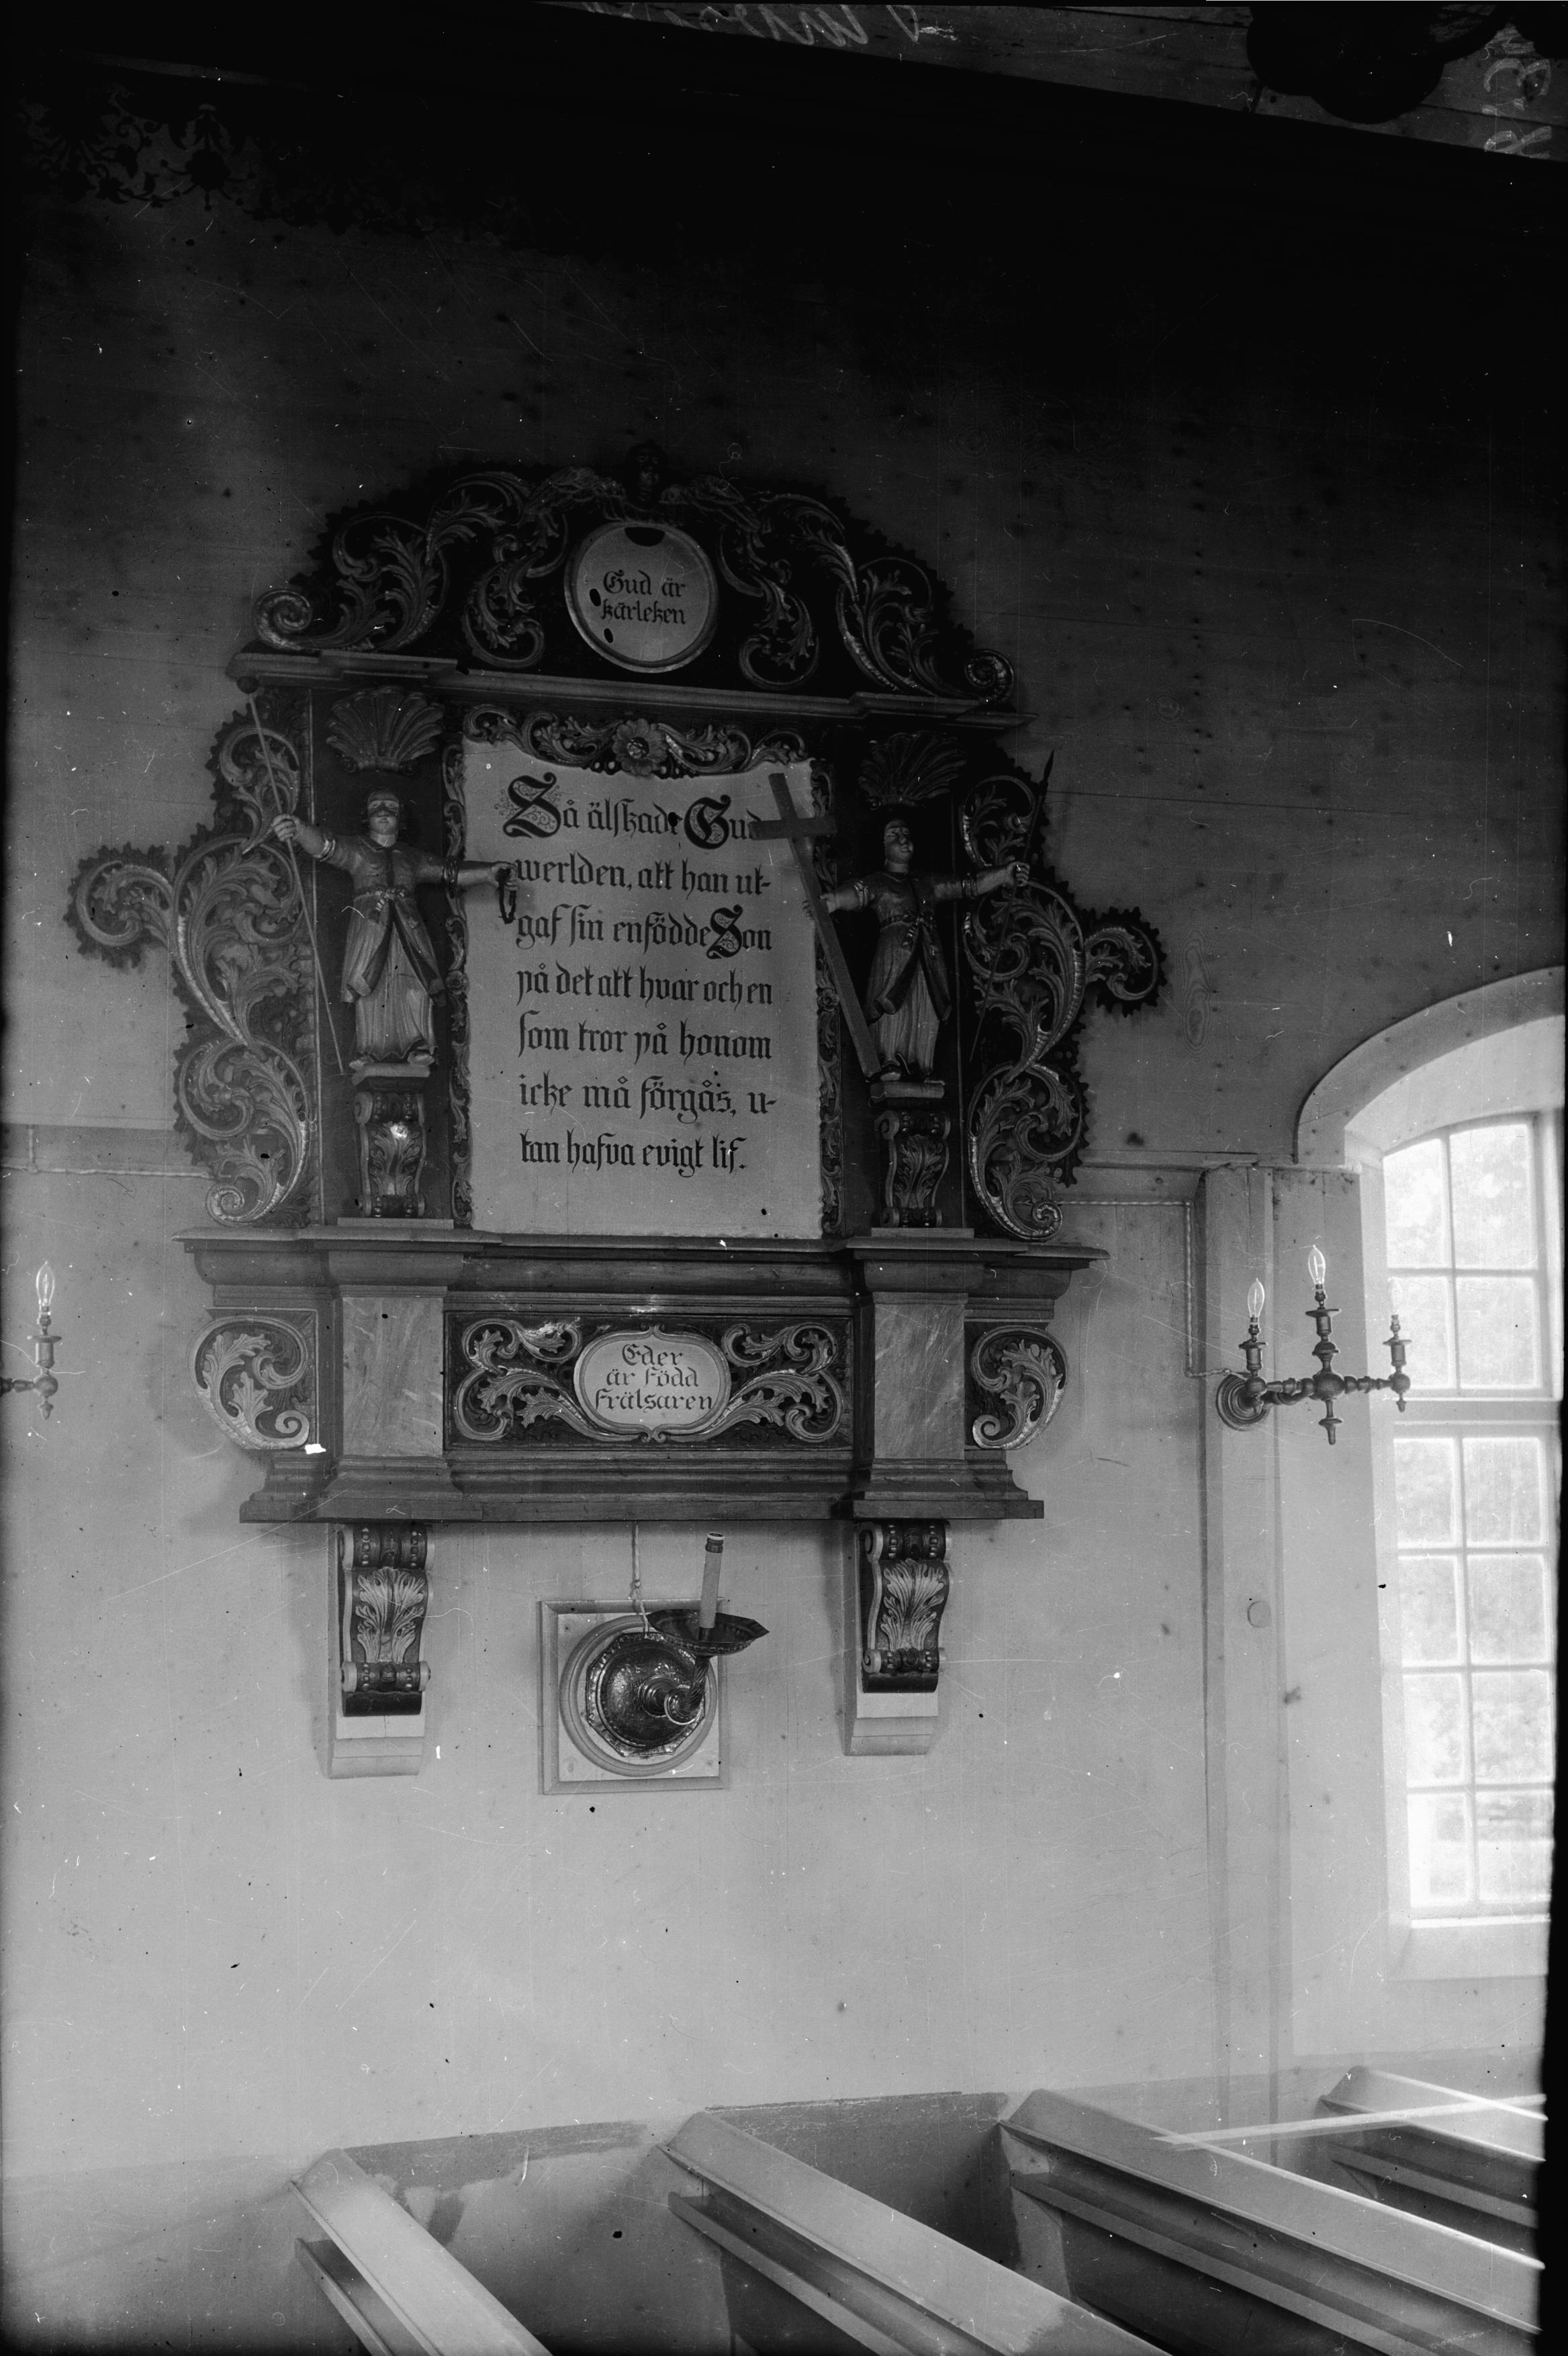 Gud är
kärleken
Så älskade Gud
werlden, att han ut-
gaf sin enfödde Son
på det att hvar och en
som tror på honom
icke må förgås, u-
tan hafva evigt lif.
Eder
är född
frälsaren